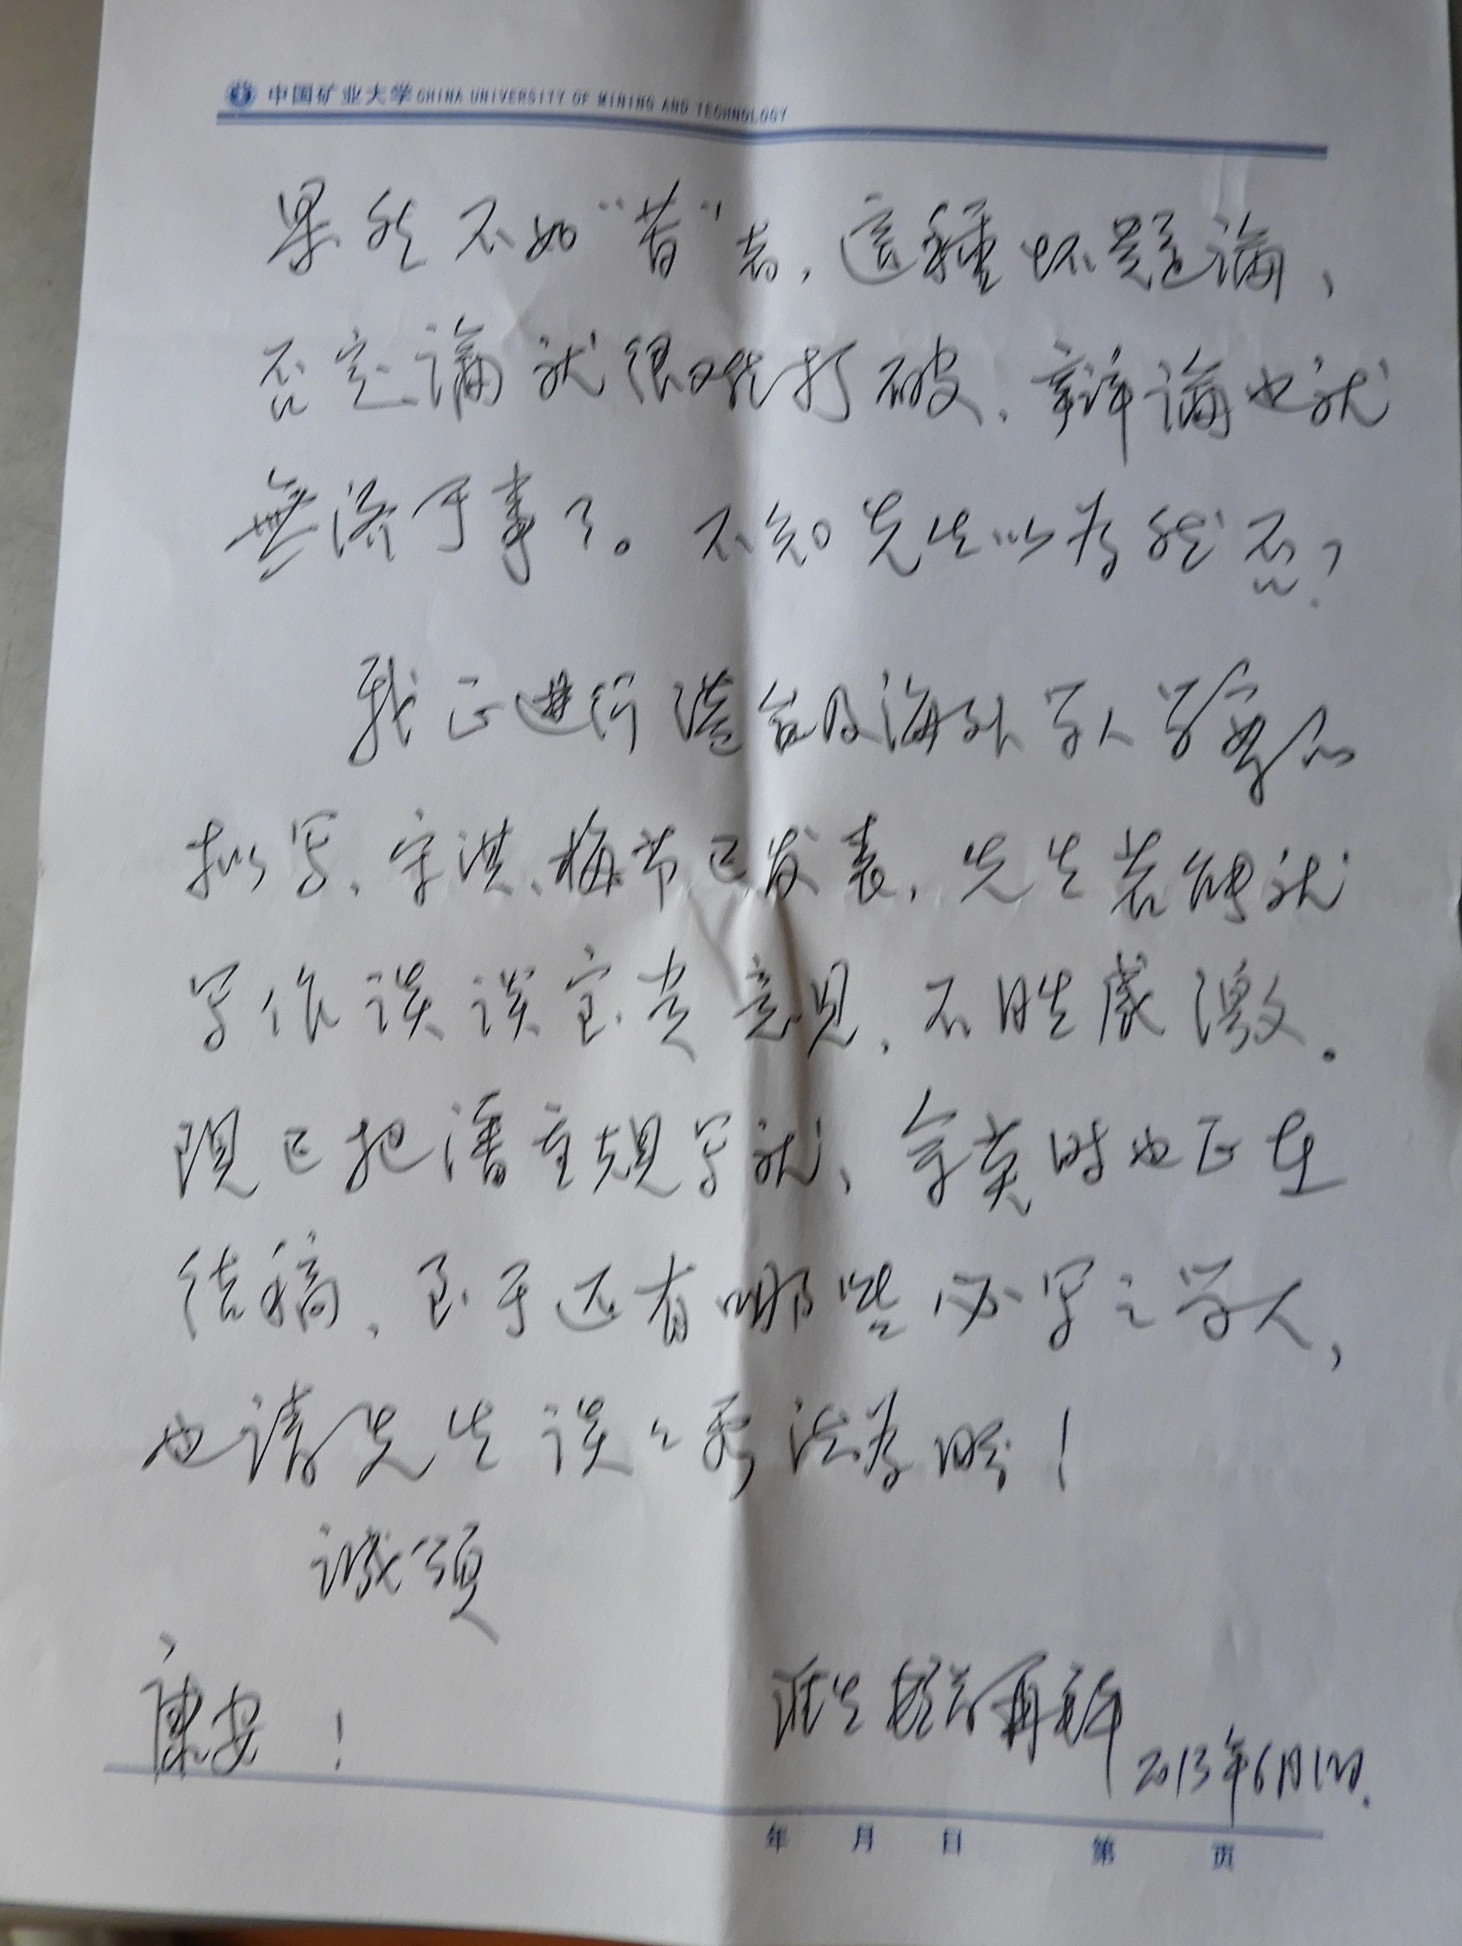 中国矿业大学 CHINA UNIVERSITY OF MINING AND TECHNOLOGY
果然不如“昔”者，這種怀疑論、
否定論就很难打破，辯論也就
無济于事了。不知先生以为然否？
我正进行港台及海外学人学案的
拟写，宋淇、梅节已发表，先生若能就
写作谈谈宝贵意见，不胜感激。
现已把潘重规写就，余英时也正在
结稿，至于还有哪些必写之学人，
也请先生谈谈看法为盼！
诚颂
康安！
高淮生 再拜
2013年6月1日.
年 月 日 第 页